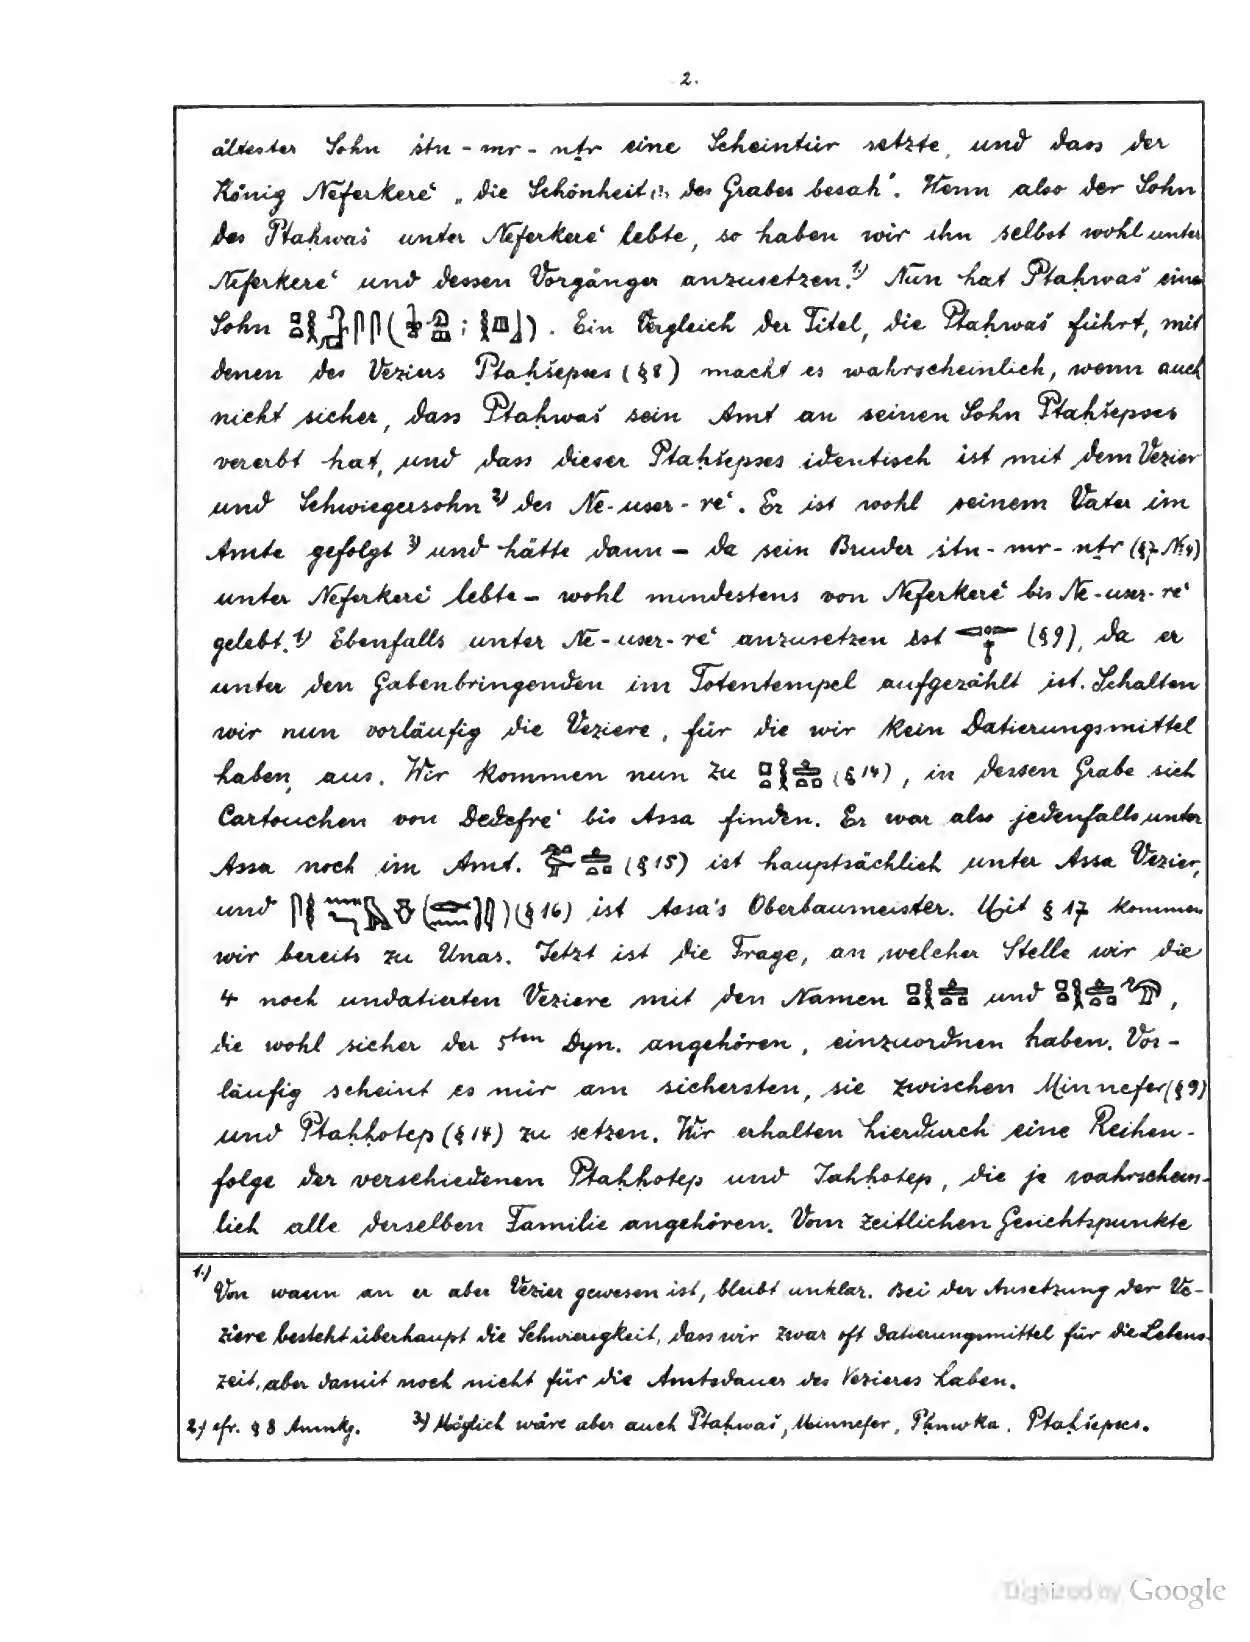 2.
ältester Sohn śtn-mr-nṯr eine Scheintür setzte, und dass der
König Neferkereʿ „die Schönheit des Grabes besah". Wenn also der Sohn
des Ptaḥwaš unter Neferkereʿ lebte, so haben wir ihn selbst wohl unter
Neferkereʿ und dessen Vorgänger anzusetzen.1) Nun hat Ptaḥwaš einen
Sohn ( ; ). Ein Vergleich der Titel, die Ptaḥwaš führt, mit
denen des Veziers Ptaḥšepses (§8) macht es wahrscheinlich, wenn auch
nicht sicher, dass Ptaḥwaš sein Amt an seinen Sohn Ptaḥšepses
vererbt hat, und dass dieser Ptaḥšepses identisch ist mit dem Vezier
und Schwiegersohn 2) des Ne-user-reʿ. Er ist wohl seinem Vater im
Amte gefolgt 3) und hätte dann – da sein Bruder śtn-mr-nṯr (§7 №4)
unter Neferkereʿ lebte – wohl mindestens von Neferkereʿ bis Ne-user-reʿ
gelebt.1) Ebenfalls unter Ne-user-reʿ anzusetzen ist (§9), da er
unter den Gabenbringenden im Totentempel aufgezählt ist. Schalten
wir nun vorläufig die Veziere, für die wir kein Datierungsmittel
haben, aus. Wir kommen nun zu (§14), in dessen Grabe sich
Cartouchen von Dedefreʿ bis Assa finden. Er war also jedenfalls unter
Assa noch im Amt. (§15) ist hauptsächlich unter Assa Vezier,
und ( ) (§16) ist Assa's Oberbaumeister. Mit §17 kommen
wir bereits zu Unas. Jetzt ist die Frage, an welcher Stelle wir die
4 noch undatierten Veziere mit den Namen und ,
die wohl sicher der 5ten Dyn. angehören, einzuordnen haben. Vor-
läufig scheint es mir am sichersten, sie zwischen Minnefer (§9)
und Ptaḥḥotep (§14) zu setzen. Wir erhalten hierdurch eine Reihen-
folge der verschiedenen Ptaḥḥotep und Iahḥotep, die je wahrschein-
lich alle derselben Familie angehören. Vom zeitlichen Gesichtspunkte
1.) Von wann an er aber Vezier gewesen ist, bleibt unklar. Bei der Ansetzung der Ve-
ziere besteht überhaupt die Schwierigkeit, dass wir zwar oft Datierungsmittel für die Lebens-
zeit, aber damit noch nicht für die Amtsdauer des Vezieres haben.
2.) cfr. §8 Anmkg. 3) Möglich wäre aber auch Ptaḥwaš, Minnefer, Pḥnwka, Ptaḥšepses.
Digitized by Google